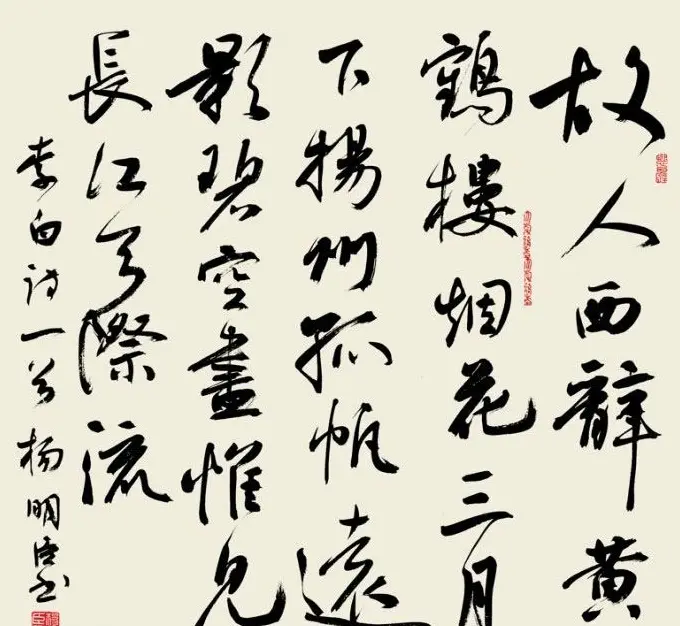 故人西辭黄
鶴樓烟花三月
下揚州孤帆遠
影碧空盡惟見
長江天際流
李白诗一首杨明臣书